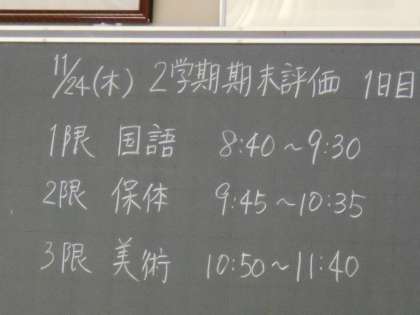 11/24(木) 2学期期末評価 1日目
1限 国語 8:40～9:30
2限 保体 9:45～10:35
3限 美術 10:50～11:40